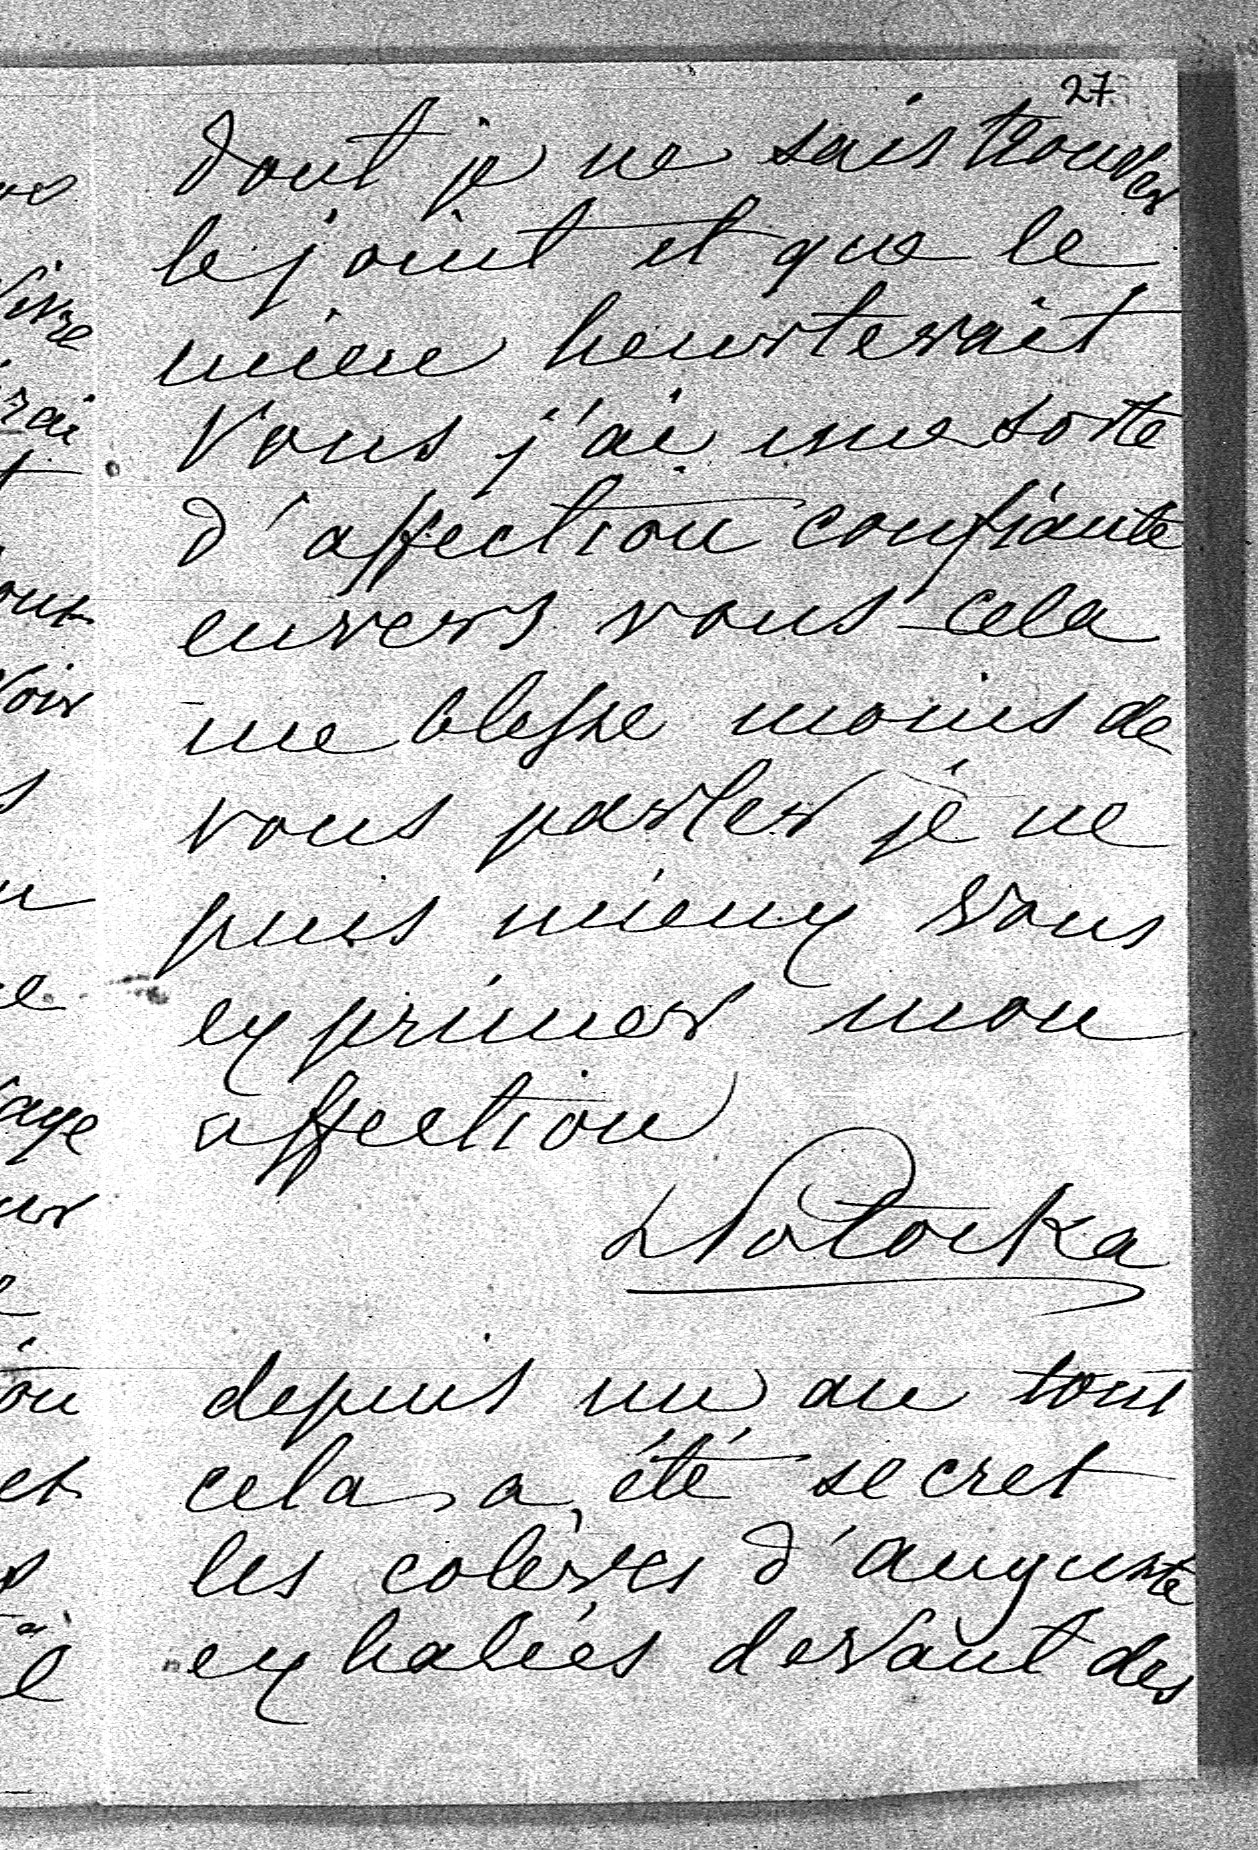 27
dont je ne sais trouver
le joint et que le
mien heurterait
Vous j'ai une sorte
d'affection confiante
envers vous cela
me blesse moins de
vous parler je ne
puis mieux vous
exprimer mon
affection
Potocka
depuis un an tout
cela a été secret
les colères d'auguste
exhalées devant des